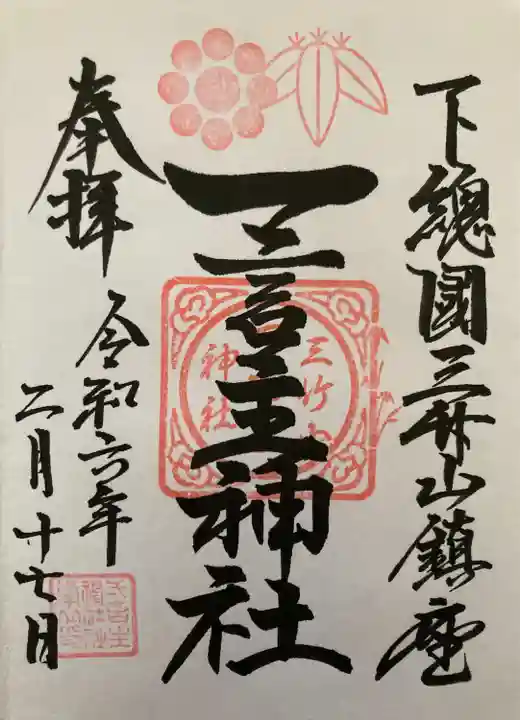 下總國三竹山鎮座
一言主神社
三竹山
神社
奉拝
令和六年
二月十七日